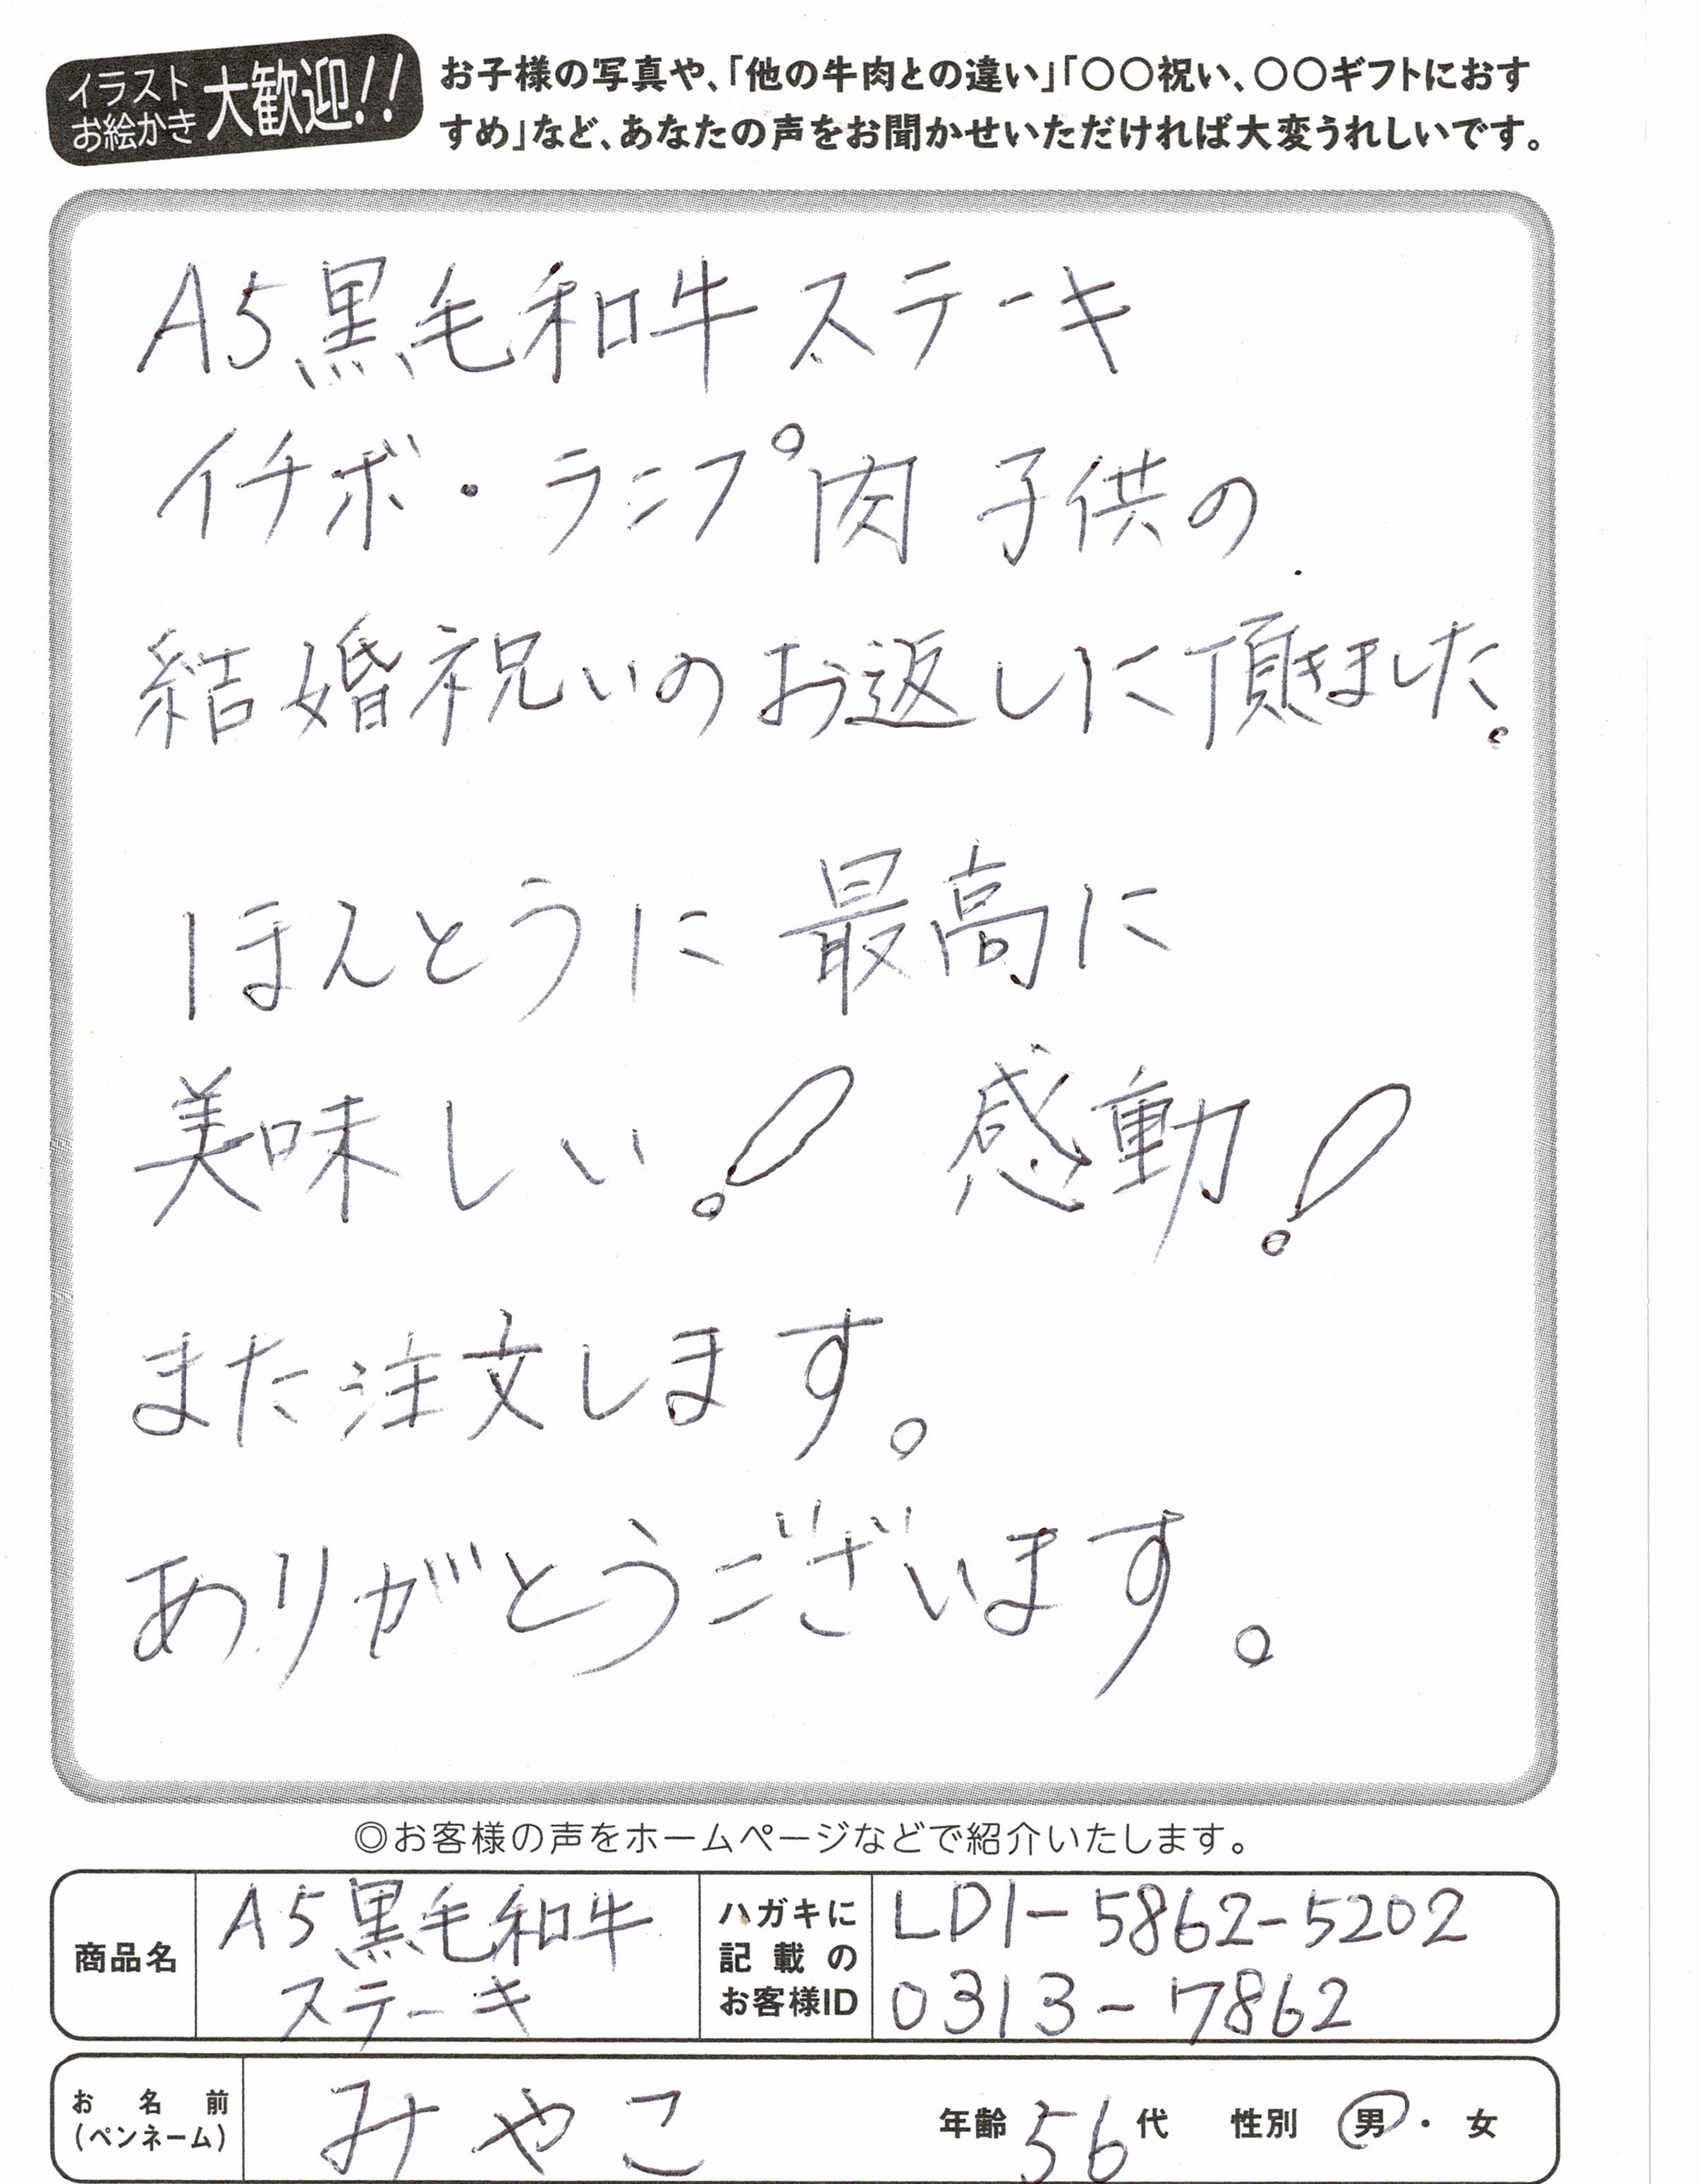 イラスト
お絵かき
大歓迎!!
お子様の写真や、「他の牛肉との違い」「〇〇祝い、〇〇ギフトにおす
すめ」など、あなたの声をお聞かせいただければ大変うれしいです。
A5黒毛和牛ステーキ
イチボ・ランプ肉 子供の
結婚祝いのお返しに頂きました。
ほんとうに 最高に
美味しい! 感動!
また注文します。
ありがとうございます。
◎お客様の声をホームページなどで紹介いたします。
商品名
A5黒毛和牛
ステーキ
ハガキに
記載の
お客様ID
LD1-5862-5202
0313-7862
お名前
(ペンネーム)
みやこ
年齢 56代 性別 男・女